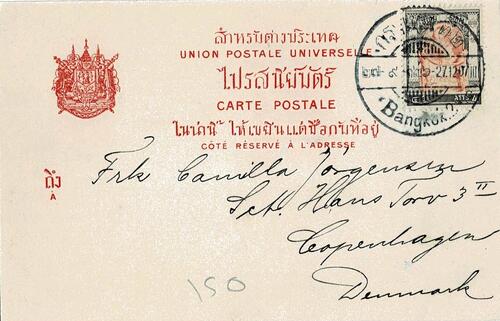 สำหรับต่างประเทศ
UNION POSTALE UNIVERSELLE
ไปรสนียบัตร์
CARTE POSTALE
ในน่านี้ ให้เขียนแต่ชื่อกับที่อยู่
CÔTÉ RÉSERVÉ À L'ADRESSE
ถึง
À
Frk Camilla Jörgensen
Sct. Hans Torv 3 II
Copenhagen
Denmark
150
Bangkok
ATTS